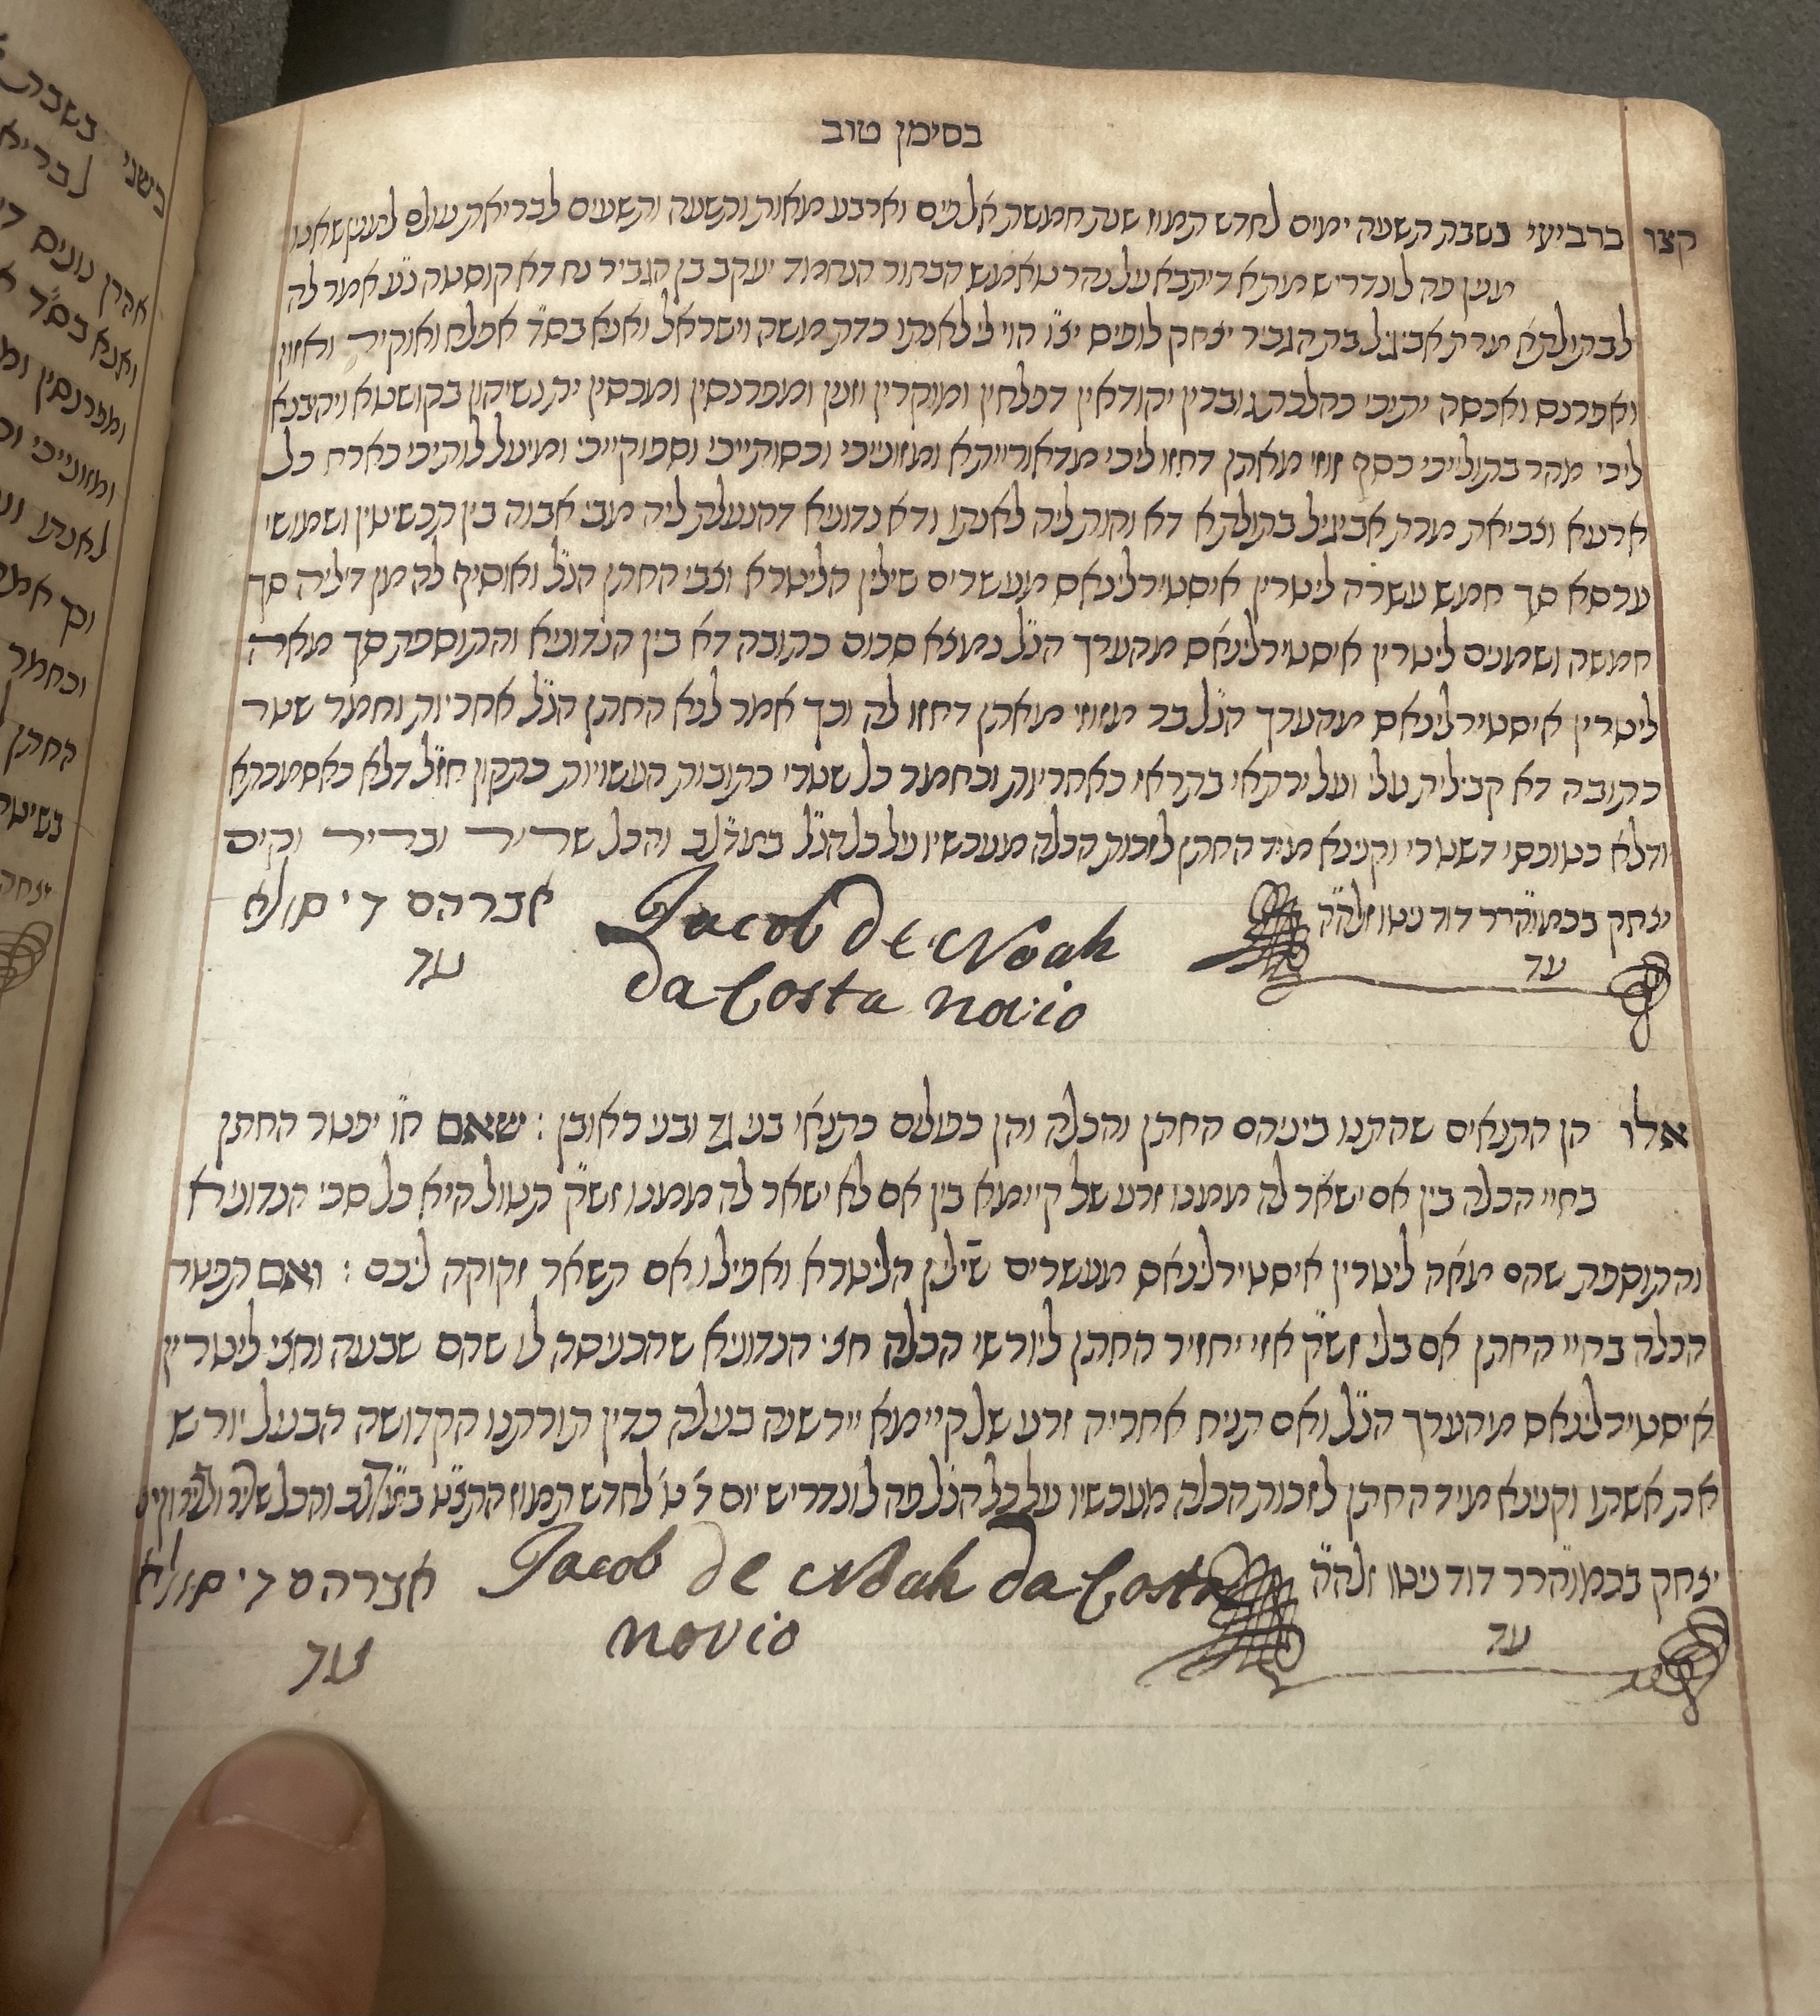 בסימן טוב
קצו ברביעי בשבת תשעה ימים לחדש תמוז שנת חמשת אלפים וארבע מאות ותשעה ותשעים לבריאת עולם למנין שאנו
מנין פה לונדריש מתא דיתבא על נהר טאמש הבחור הנחמד יעקב בן הגביר נח דא קוסטה נ"ע אמר לה
לבתולתא מרת אביגיל בת הגביר יצחק לופיס יצ"ו הוי לי לאנתו כדת משה וישראל ואנא בס"ד אפלח ואוקיר ואזון
ואפרנס ואכסה יתיכי כהלכת גוברין יהודאין דפלחין ומוקרין וזנין ומפרנסין ומכסין ית נשיהון בקושטא ויהבנא
ליכי מהר בתולייכי כסף זוזי מאתן דחזו ליכי מדאורייתא ומזונייכי וכסותייכי וספוקייכי ומיעל לותיכי כארח כל
ארעא וצביאת מרת אביגיל בתולתא דא והות ליה לאנתו ודא נדוניא דהנעלת ליה מבי אבוה בין תכשיטין ושמושי
ערסא סך חמש עשרה ליטרין איסטירלינאס מעשרים שילין הליטרא וצבי החתן הנ"ל ואוסיף לה מן דיליה סך
חמשה ושמנים ליטרין איסטירלינאס מהערך הנ"ל נמצא סכום כתובה דא בין הנדוניא והתוספת סך מאה
ליטרין איסטירלינאס מהערך הנ"ל בר מזוזי מאתן דחזו לה וכך אמר לנא החתן הנ"ל אחריות וחמר שטר
כתובה דא קבילית עלי ועל ירתאי בתראי כאחריות וכחמר כל שטרי כתובות העשויות כתקון חז"ל דלא כאסמכתא
ודלא כטופסי דשטרי וקנינא מיד החתן לזכות הכלה מעכשיו על כל הנ"ל במדל"ב והכל שריר ובריר וקים
יצחק בכמוהרר דוד ניטו זלה"ה Jacob de Noah אברהם די
עד da Costa novio עד
אלו הן התנאים שהתנו ביניהם החתן והכלה והן כפולים כתנאי בני גד ובני ראובן : שאם ח"ו יפטר החתן
בחיי הכלה בין אם ישאר לה ממנו זרע של קיימא בין אם לא ישאר לה ממנו זש"ק תטול היא כל סכי הנדוניא
והתוספת שהם מאה ליטרין איסטירלינאס מעשרים שילין הליטרא ואפילו אם תשאר זקוקה ליבם : ואם תפטר
הכלה בחיי החתן אם בלי זש"ק אזי יחזיר החתן ליורשי הכלה חצי הנדוניא שהכניסה לו שהם שבעה וחצי ליטרין
איסטירלינאס מהערך הנ"ל ואם תניח אחריה זרע של קיימא יירשנה בעלה כדין תורתנו הקדושה הבעל יורש
את אשתו וקנינא מיד החתן לזכות הכלה מעכשיו על כל הנ"ל פה לונדריש יום ד' ט' לחדש תמוז התצ"ט במדל"ב והכל שריר ובריר וקים
יצחק בכמוהרר דוד ניטו זלה"ה Jacob de Noah da Costa אברהם די
עד novio עד